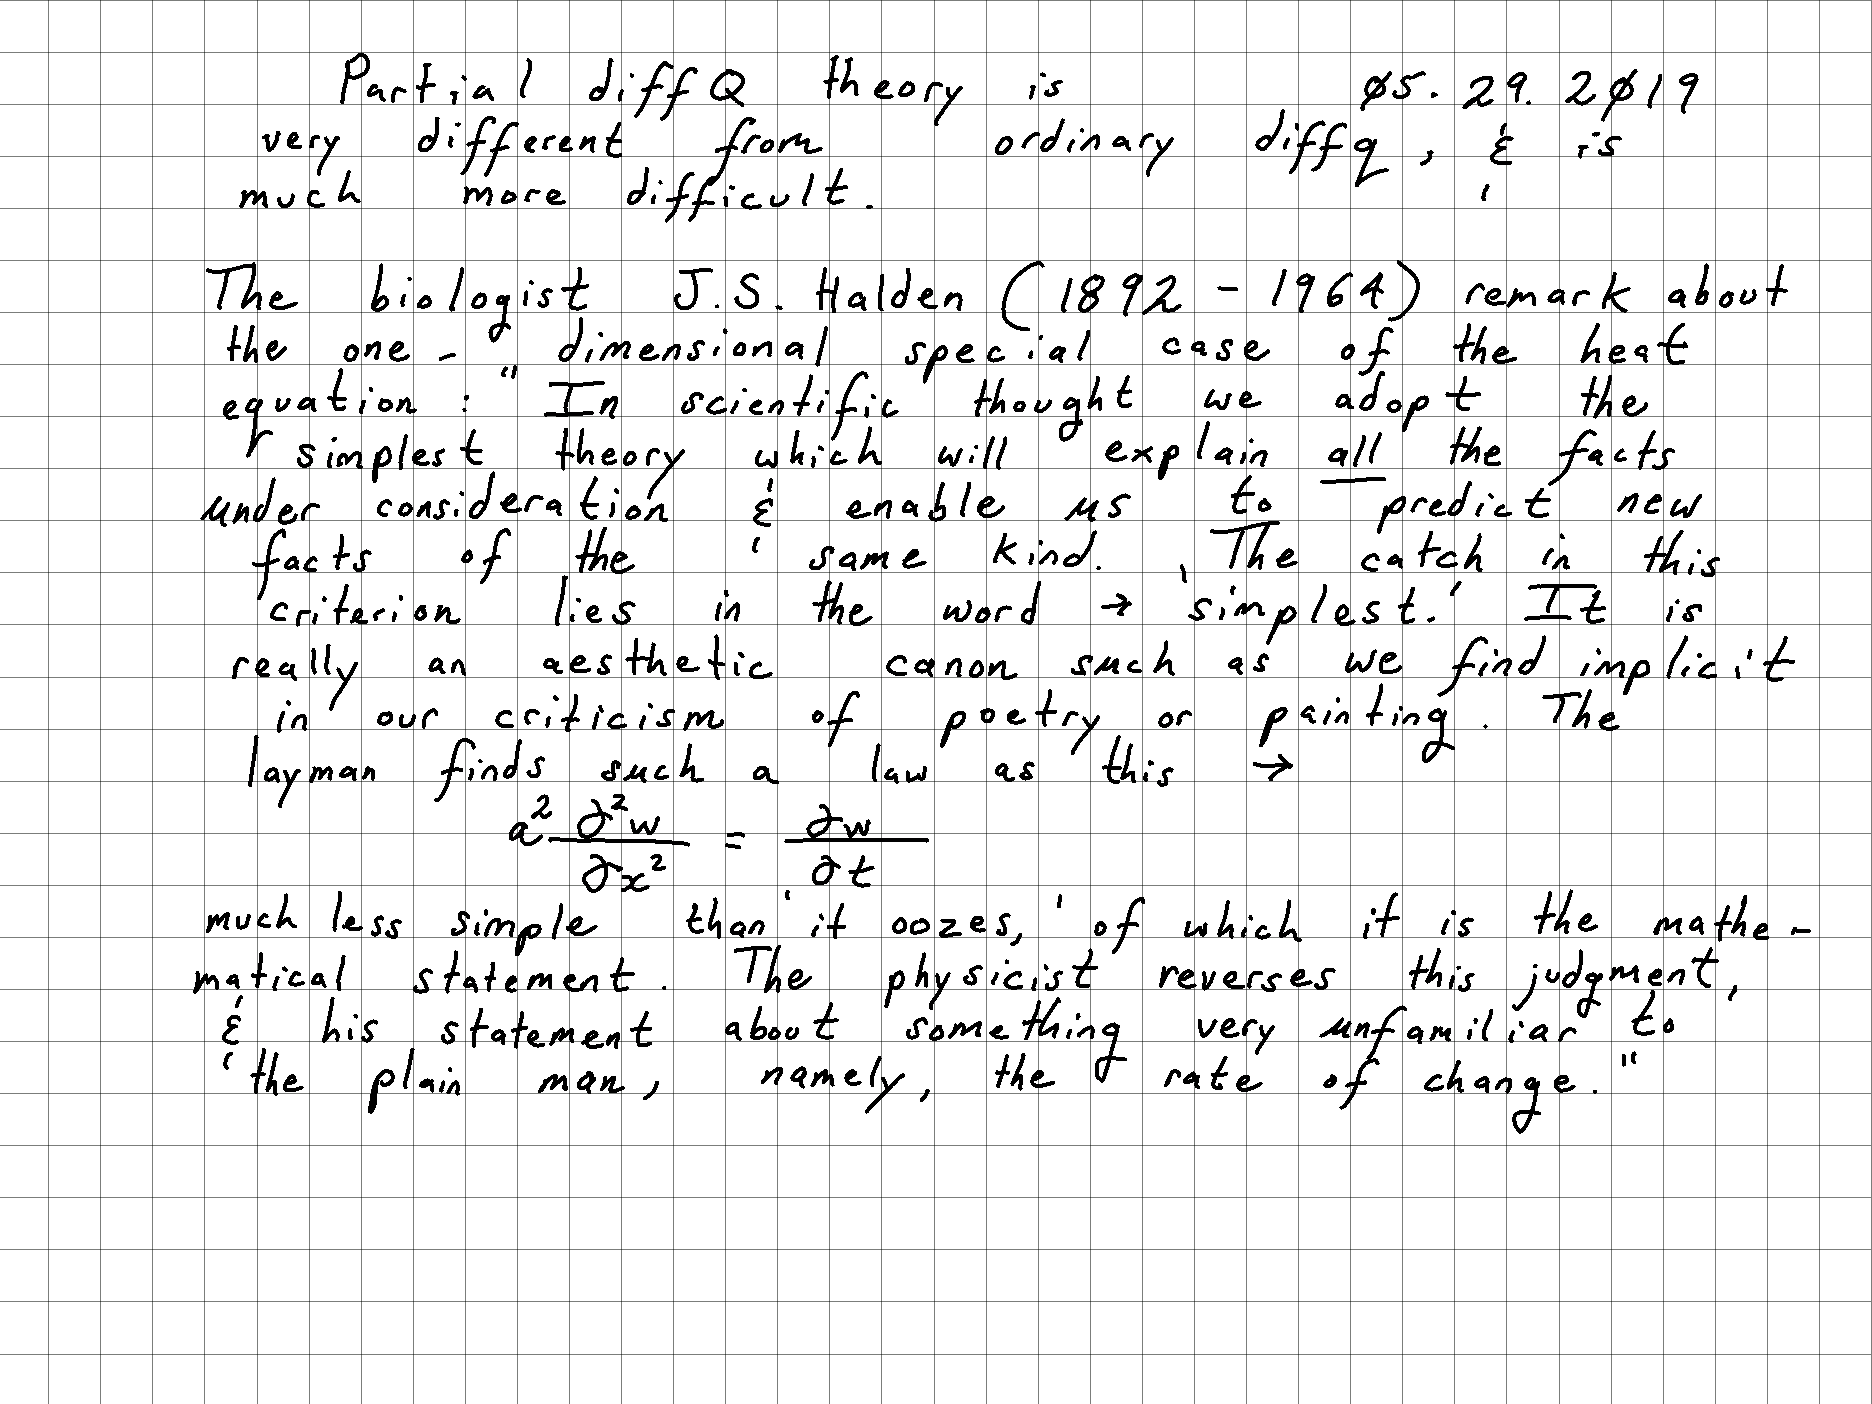 Partial diffQ theory is 05.29.2019
very different from ordinary diffq, & is
much more difficult.
The biologist J.S. Halden (1892 - 1964) remark about
the one - dimensional special case of the heat
equation: "In scientific thought we adopt the
simplest theory which will explain all the facts
under consideration & enable us to predict new
facts of the same kind. The catch in this
criterion lies in the word → 'simplest.' It is
really an aesthetic canon such as we find implicit
in our criticism of poetry or painting. The
layman finds such a law as this →
a² ∂²w/∂x² = ∂w/∂t
much less simple than 'it oozes,' of which it is the mathe-
matical statement. The physicist reverses this judgment,
& his statement about something very unfamiliar to
the plain man, namely, the rate of change."